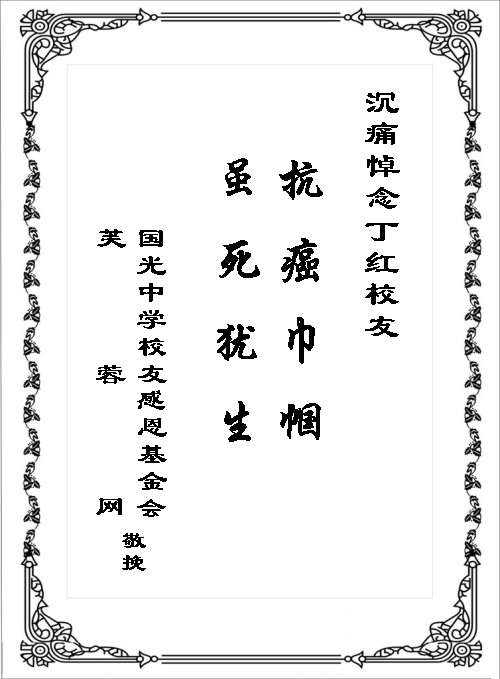 沉痛悼念丁红校友
抗癌巾帼
虽死犹生
国光中学校友感恩基金会
芙蓉网
敬挽